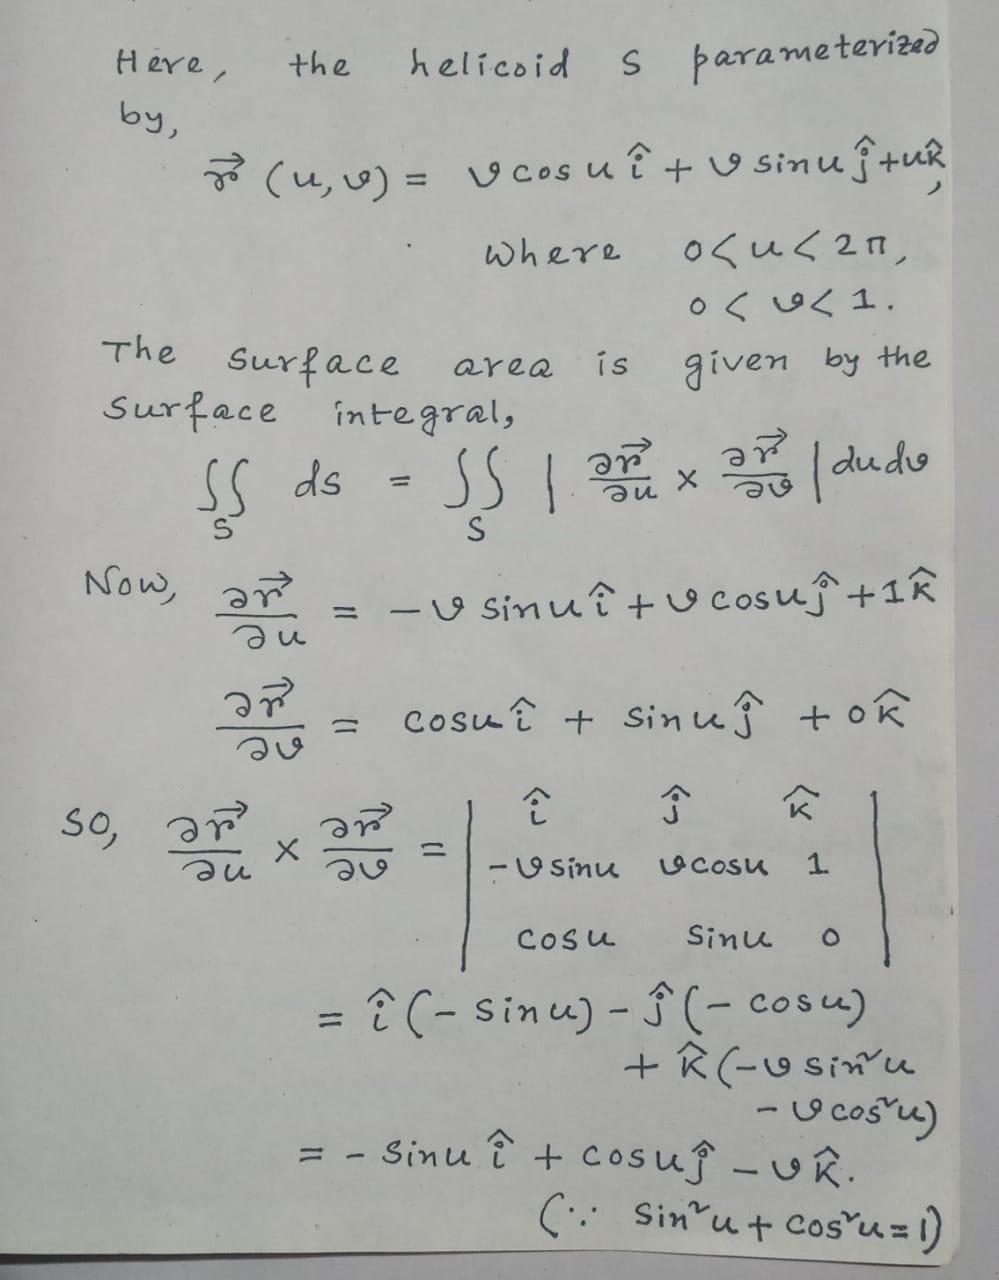 Here, the helicoid S parameterized
by,
r⃗ (u, v) = v cos u î + v sin u ĵ + u k̂,
where 0 < u < 2π,
0 < v < 1.
The surface area is given by the
surface integral,
∬_S ds = ∬_S | ∂r⃗/∂u × ∂r⃗/∂v | du dv
Now, ∂r⃗/∂u = -v sin u î + v cos u ĵ + 1 k̂
∂r⃗/∂v = cos u î + sin u ĵ + 0 k̂
So, ∂r⃗/∂u × ∂r⃗/∂v = | î ĵ k̂
-v sin u v cos u 1
cos u sin u 0 |
= î (- sin u) - ĵ (- cos u)
+ k̂ (-v sin²u
- v cos²u)
= - sin u î + cos u ĵ - v k̂.
(∵ sin²u + cos²u = 1)